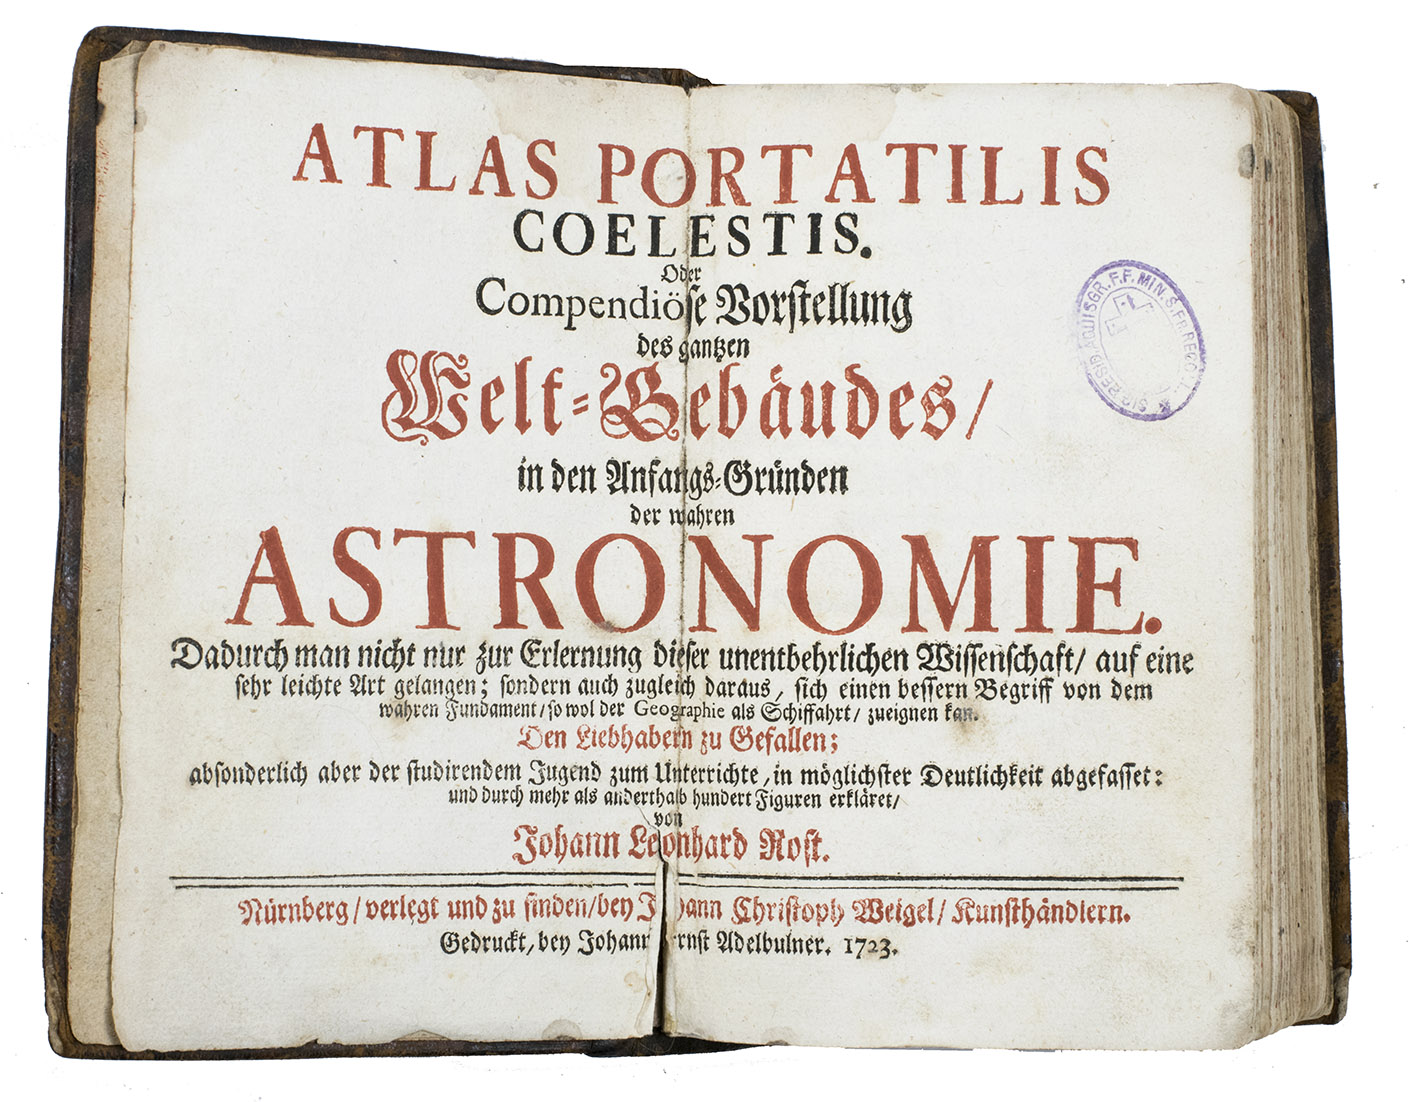 ATLAS PORTATILIS
COELESTIS.
Oder
Compendiöse Vorstellung
des gantzen
Welt-Gebäudes/
in den Anfangs-Gründen
der wahren
ASTRONOMIE.
Dadurch man nicht nur zur Erlernung dieser unentbehrlichen Wissenschaft/ auf eine
sehr leichte Art gelangen; sondern auch zugleich daraus, sich einen bessern Begriff von dem
wahren Fundament/ so wol der Geographie als Schiffahrt/ zueignen kan.
Den Liebhabern zu Gefallen;
absonderlich aber der studirendem Jugend zum Unterrichte, in möglichster Deutlichkeit abgefasset:
und durch mehr als anderthalb hundert Figuren erkläret/
von
Johann Leonhard Rost.
Nürnberg/ verlegt und zu finden/ bey Johann Christoph Weigel/ Kunsthändlern.
Gedruckt, bey Johann Ernst Adelbulner. 1723.
AQUISGR. F.F. MIN. S. FR.